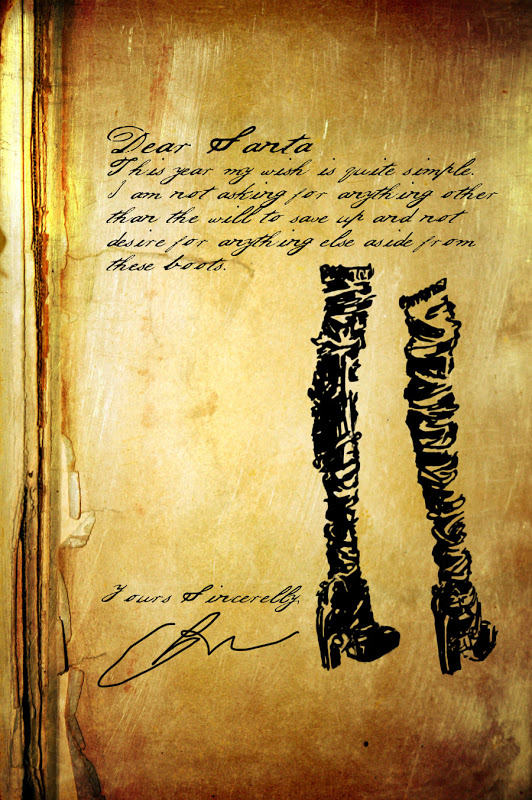 Dear Santa
This year my wish is quite simple.
I am not asking for anything other
than the will to save up and not
desire for anything else aside from
these boots.
Yours Sincerelly,